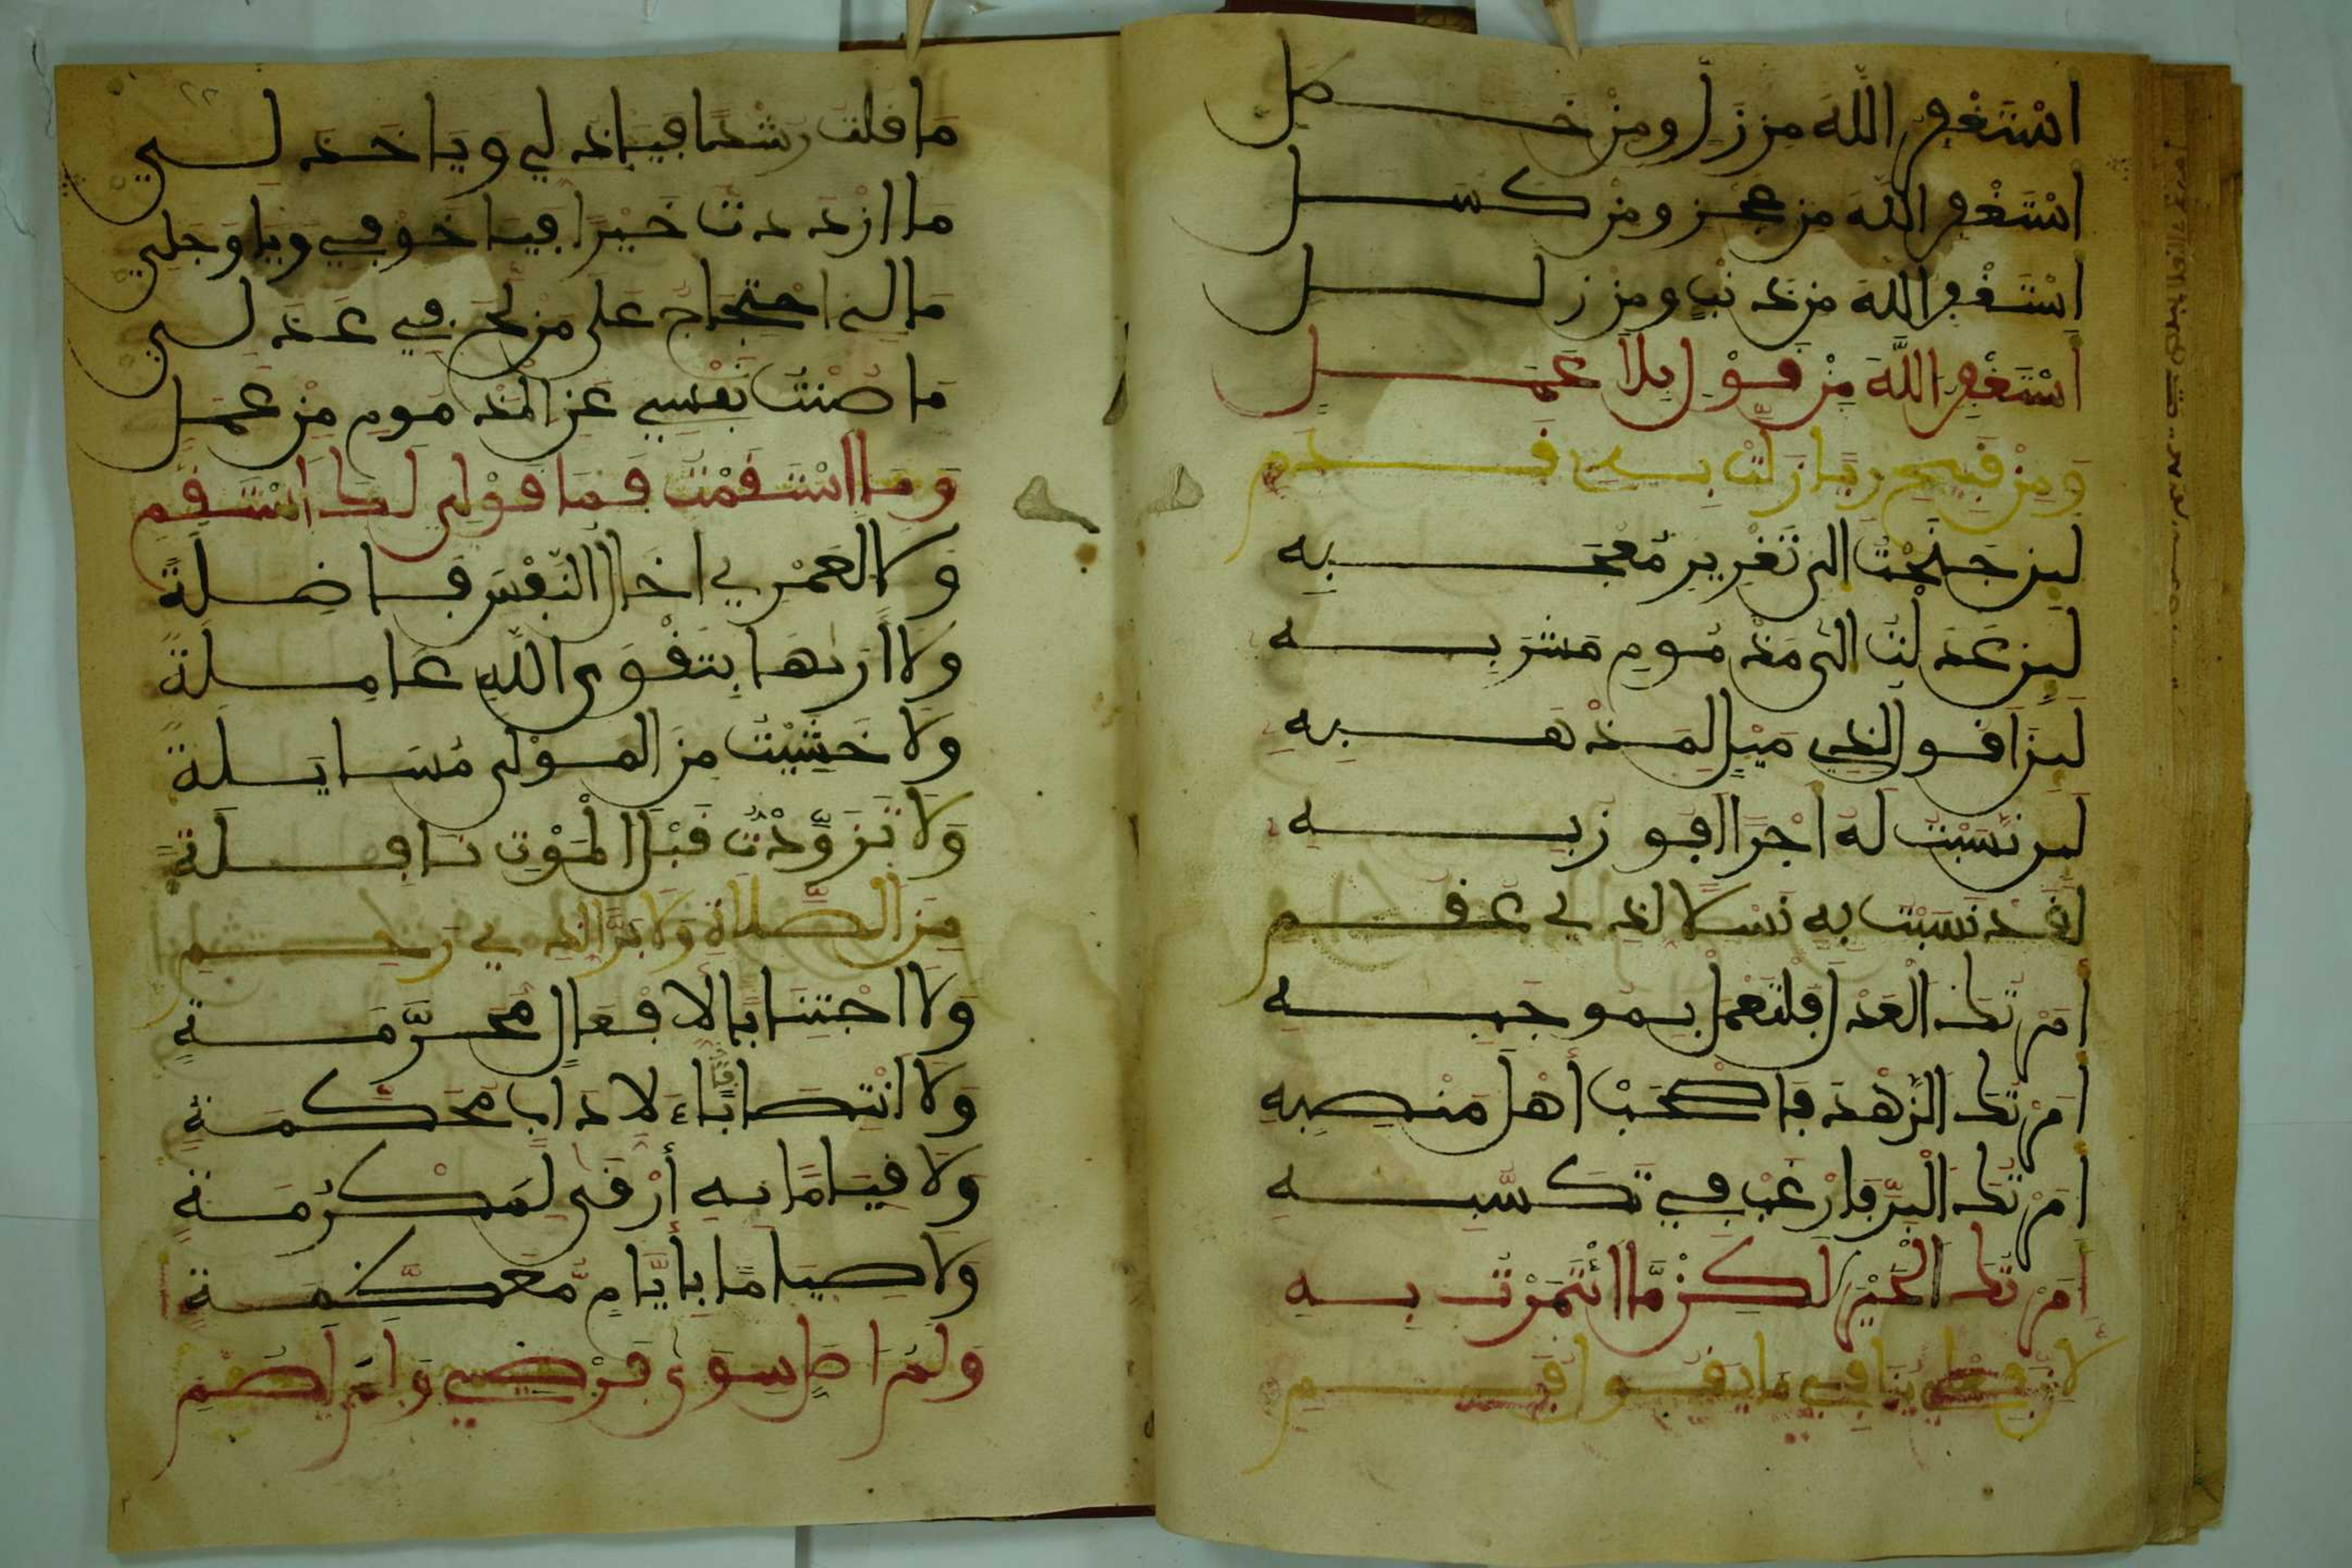 اسْتَغْفِرُ اللَّهَ مِن زَلَلٍ ومِنْ خَطَلِ
اسْتَغْفِرُ اللَّهَ مِن عجزٍ ومِنْ كَسَلِ
اسْتَغْفِرُ اللَّهَ مِن ذنْبٍ ومِن زللِ
اسْتَغْفِرُ اللَّهَ مِنْ قَوْلٍ بِلَا عَمَلِ
وَمِنْ قَبِيحِ رِيَا زَلَّتْ بِهِ قَدَمِ
لَئِن جَنَحْتُ الى تَغْرِيرِ مُعْجَبِهِ
لَئِن عَدَلْتُ الى مَذْمُومِ مَشْرَبِهِ
لَئِن اقول الذي مَيْلٌ لِمَذْهَبِهِ
لئن نَسَبْتُ لَهُ اجْرًا افوزُ بِهِ
لقد نَسَبْتُ بِهِ نَسْلًا لذي عقمِ
أَمَرْتُكَ الْعَدْلَ فلتَعْمَلْ بِمُوجَبِهِ
أَمَرْتُكَ الزُّهْدَ فَاصْحَبْ أَهْلَ مَنْصِبِهِ
أَمَرْتُكَ الْبِرَّ فَارْغَبْ فِي تَكَسُّبِهِ
أَمَرْتُكَ الْخَيْرَ لَكِنْ مَّا ائْتَمَرْتُ بِهِ
مَا قلتُ رَشْدًا فيَا ذلي ويَا خَذلي
مَا ازْدَدتُ خَيْرًا فيَا خَوْفِي وَيَا وَجَلِي
مَا لي احْتِجَاجٌ عَلى مَنْ لَجَّ فِي عَذَلِي
مَا صُنْتُ نَفْسِي عَنِ المَذْمُومِ مِنْ عَمَلِ
وَمَا اسْتَقَمْتُ فَمَا قَوْلِي لَكَ اسْتَقِمِ
وَلَا لَعَمْرِي اخَالُ النَّفْسَ فَاضِلَةً
وَلَا ارَاهَا بِتَقْوَى اللَّهِ عَامِلَةً
وَلَا خَشِيْتُ مِنَ المَوْلَى مُسَايَلَةً
وَلَا تَزَوَّدْتُ قَبْلَ الْمَوْتِ نَافِلَةً
مِنَ الصَّلَاةِ وَلَا بَرًّا لذي رَحِمِ
وَلَا اجْتِنَابًا لأفْعَالٍ مُحَرَّمَةٍ
وَلَا انْتِصَابًا لآدَابٍ مُحَكَّمَةٍ
وَلَا قِيَامًا بهِ أَرْقَى لِمَكْرُمَةٍ
وَلَا صِيَامًا بِأَيَّامٍ مُّعَظَّمَةٍ
وَلَمْ اصَلِّ سِوَى فَرْضِي وَلَمْ اصُمِ